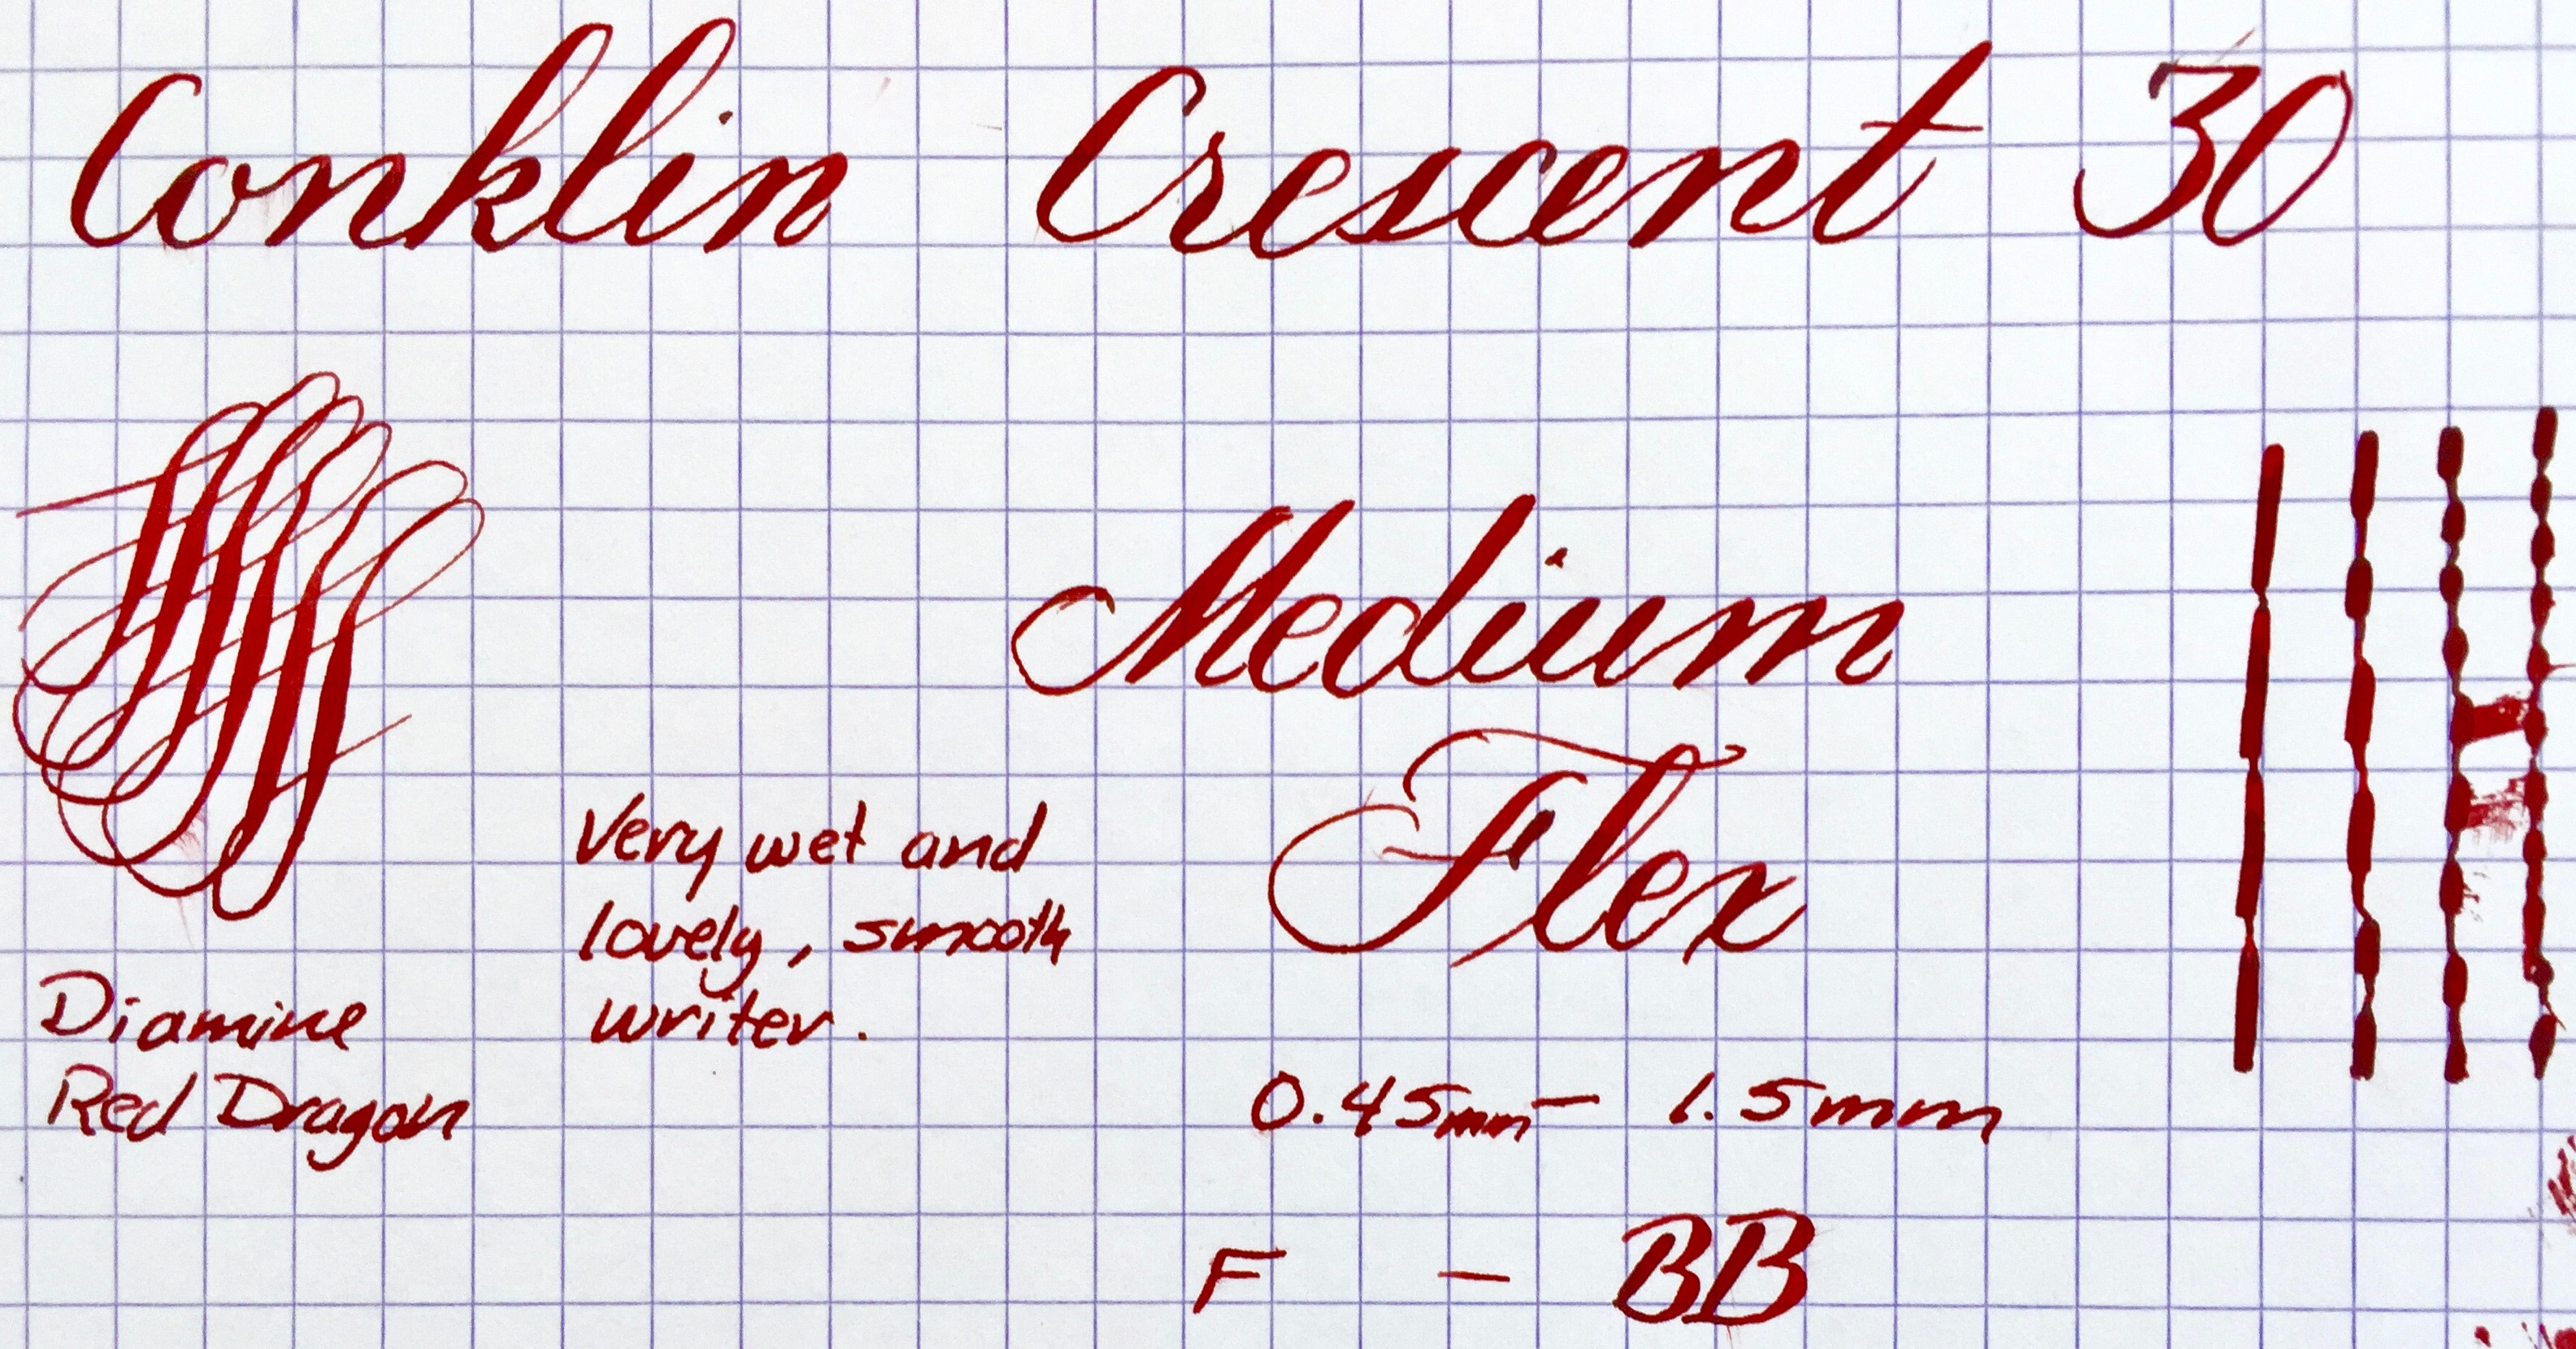 Conklin Crescent 30
Medium
Flex
Very wet and
lovely, smooth
writer.
Diamine
Red Dragon
0.45mm - 1.5mm
F - BB